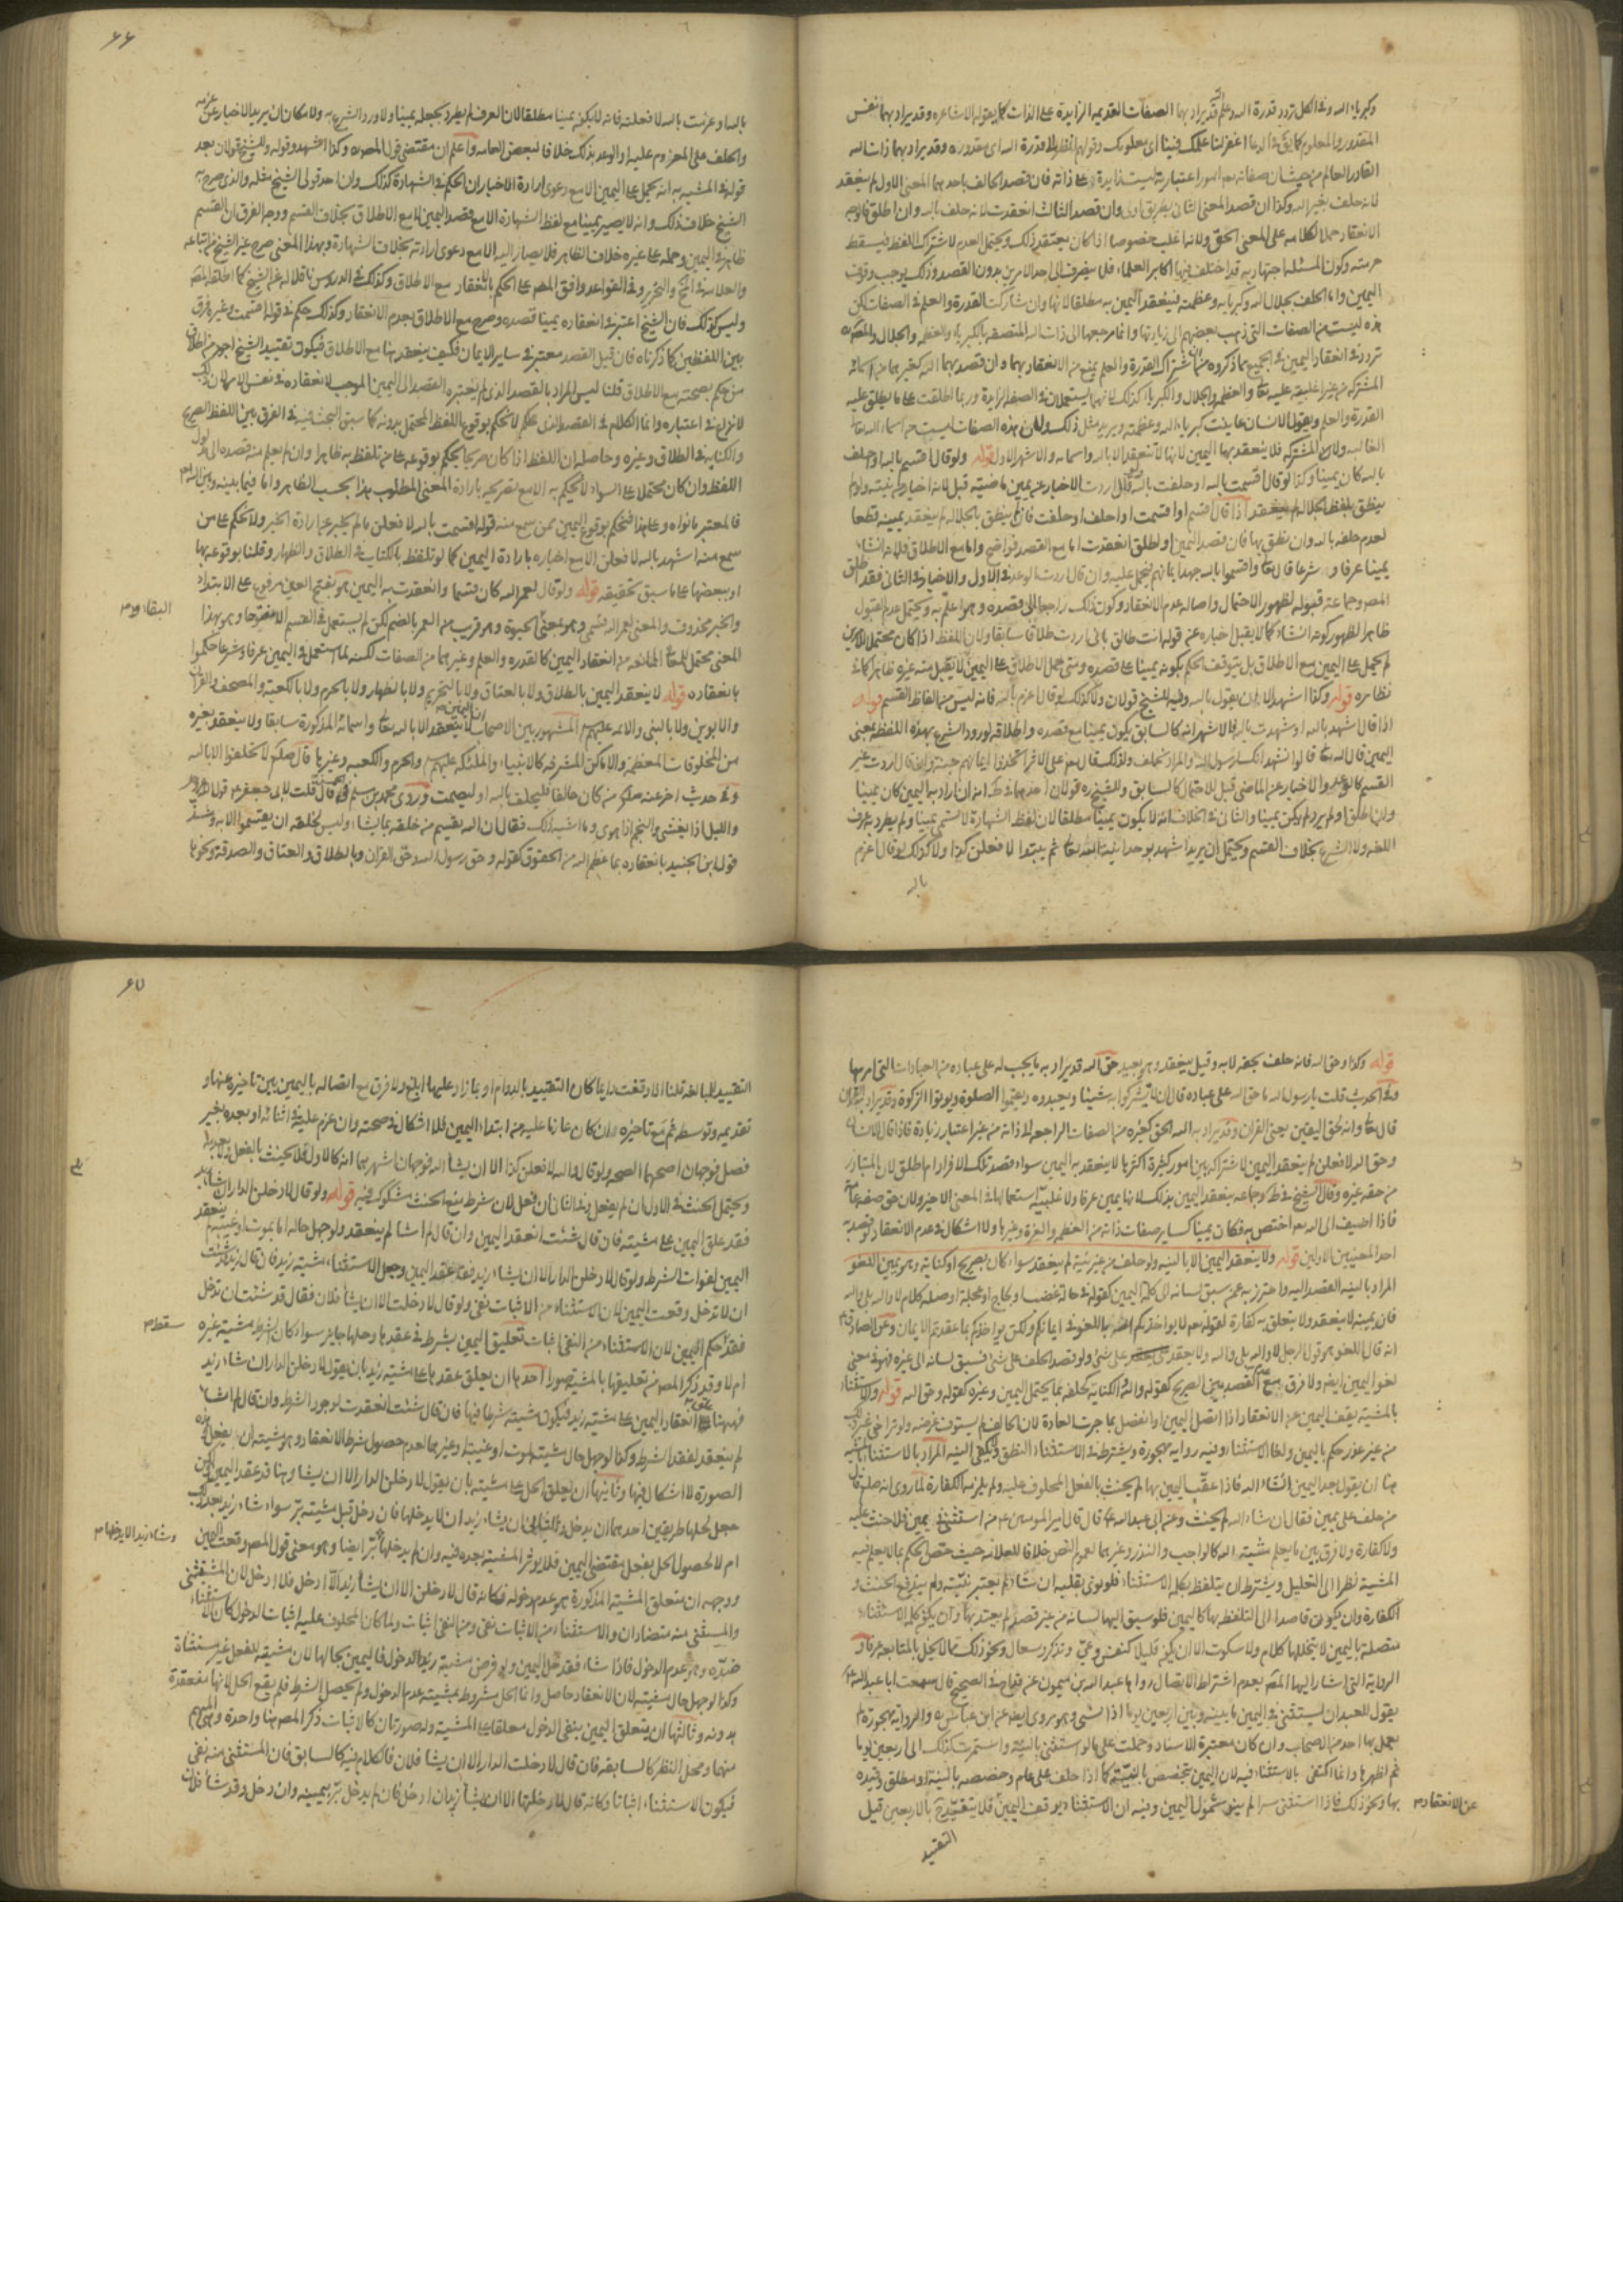 وكبرياء الله وفي الكل تردد قدرة الله وعلم الله قد يراد بهما الصفات القديمة الزايدة على الذات كما يقوله الاشاعرة وقد يراد بهما نفس
المقدور والمعلوم كما يق في الدعا اغفر لنا علمك فينا أي معلومك وقولهم انظر الى قدرة الله أي مقدوره وقد يراد بهما ذات الله
القادر العالم من حيث ان صفاته امور اعتبارية ليست زايدة على ذاته فان قصد الحالف باحدهما المعنى الاول لم ينعقد
لانه حلف بغير الله وكذا ان قصد المعنى الثاني بطريق اولى وان قصد الثالث انعقدت لانه حلف بالله وان اطلق فالوجه
الانعقاد حملا لكلامه على المعنى الحق ولانه اغلب خصوصا اذا كان يعتقد ذلك ويحتمل العدم لاشتراك اللفظ فيسقط
حرمته وكون المسئلة اجتهادية قد اختلف فيها اكابر العلماء فلا ينصرف الى احد الامرين بدون القصد وذلك يوجب وقوف
اليمين واما الحلف بجلال الله وكبريائه وعظمته فينعقد اليمين به مطلقا لانها وان شاركت القدرة والعلم في الصفات لكن
هذه ليست من الصفات التي ذهب بعضهم الى زيادتها وانما مرجعها الى ذات الله المتصفة بالكبرياء والعظمة والجلال والمص
تردد في انعقاد اليمين في الجميع مما ذكروه من اشتراك القدرة والعلم يمنع من الانعقاد بهما وان قصد بهما الله كغيرهما من اسمائه
المشتركة من غير اغلبية عليه تعا والعظمة والجلال والكبرياء كذلك لانهما يستعملان في الصفة الزايدة وربما اطلقت على ما يطلق عليه
القدرة والعلم ويقول الانسان عاينت كبرياء الله وعظمته ويريد مثل ذلك ولان هذه الصفات ليست من اسماء الله تعا
الغالبة ولا من المشتركة فلا ينعقد بها اليمين لانها لا تنعقد الا بالله واسمائه والاشهر الاول قوله ولو قال اقسم بالله او احلف
بالله كان يمينا وكذا لو قال اقسمت بالله او حلفت بالله ولو قال اردت الاخبار عن يمين ماضية قبل لانه اخبار عن نيته ولو لم
ينطق بلفظ الجلالة لم ينعقد اذا قال اقسم او اقسمت او احلف او حلفت فان لم ينطق بالجلالة لم ينعقد يمينه قطعا
لعدم حلفه بالله وان نطق بها فان قصد اليمين او اطلق انعقدت اما مع القصد فواضح واما مع الاطلاق فلانه انشاء
يمينا عرفا وشرعا قال تعا واقسموا بالله جهد ايمانهم فيحمل عليه وان قال اردت الوعد في الاول والاخبار في الثاني فقد اطلق
المص وجماعة قبوله لظهور الاحتمال واصالة عدم الانعقاد وكون ذلك راجعا الى قصده وهو اعلم به ويحتمل عدم القبول
ظاهرا لظهور كونه انشاء كما لا يقبل اخباره عن قوله انت طالق باني اردت طلاقا سابقا ولان اللفظ اذا كان محتملا للامرين
لم يحمل على اليمين مع الاطلاق بل يتوقف الحكم بكونه يمينا على قصده ومتى حمل الاطلاق على اليمين لا يقبل منه غيره ظاهرا كما في
نظائره قوله وكذا اشهد الا ان يقول بالله وفيه للشيخ قولان ولا كذلك لو قال اعزم بالله فانه ليس من الفاظ القسم قوله
اذا قال اشهد بالله او شهدت بالله فالاشهر انه كالسابق يكون يمينا مع قصده واطلاقه لورود الشرع بهذه اللفظة بمعنى
اليمين قال الله تعا قالوا نشهد انك لرسول الله والمراد نحلف ولذلك قال تعا على الاثر اتخذوا ايمانهم جنة وان قال اردت غير
القسم كالوعد والاخبار عن الماضي قبل للاحتمال كالسابق وللشيخ ره قولان احدهما في ط انه ان اراد به اليمين كان يمينا
وان اطلق او لم يرد لم يكن يمينا والثاني في الخلاف انه لا يكون يمينا مطلقا لان لفظ الشهادة لا تسمى يمينا ولم يطرد به عرف
اللغة ولا الشرع بخلاف القسم ويحتمل ان يريد اشهد بوحدانية الله تعا ثم يبتدا لافعلن كذا ولا كذلك لو قال اعزم
بالله
۶۶
بالله او عزمت بالله لافعلن فانه لا يكون يمينا مطلقا لان العرف لم يطرد بجعله يمينا ولا ورد الشرع به ولامكان ان يريد الاخبار عن عزمه
والحلف على المعزوم عليه او الوعد بذلك خلافا لبعض العامة واعلم ان مقتضى قول المص وكذا اشهد وقوله وللشيخ قولان بعد
قوله في المشبه به انه يحمل على اليمين الا مع دعوى ارادة الاخبار ان الحكم في الشهادة كذلك وان احد قولي الشيخ مثله والذي صرح به
الشيخ خلاف ذلك وانه لا يصير يمينا مع لفظ الشهادة الا مع قصد اليمين لا مع الاطلاق بخلاف القسم ووجه الفرق ان القسم
ظاهر في اليمين وحمله على غيره خلاف الظاهر فلا يصار اليه الا مع دعوى ارادته بخلاف الشهادة وبهذا المعنى صرح غير الشيخ من اتباعه
والعلامة في المخ والتحرير وفي القواعد وافق المص على الحكم بالانعقاد مع الاطلاق وكذلك في الدروس ناقلا له عن الشيخ كما اطلقه المص
وليس كذلك فان الشيخ اعتبر في انعقاده يمينا قصده وصرح مع الاطلاق بعدم الانعقاد وكذلك حكم في قوله اقسمت وغيره فرق
بين اللفظين كما ذكرناه فان قيل القصد معتبر في ساير الايمان فكيف ينعقد هنا مع الاطلاق فيكون تقييد الشيخ اجود من اطلاق
من حكم بصحته مع الاطلاق قلنا ليس المراد بالقصد الذي لم يعتبره القصد الى اليمين الموجب لانعقاده في نفس الامر لان ذلك
لا نزاع في اعتباره وانما الكلام في القصد الذي يحكم لا نحكم بوقوع اللفظ المحتمل بدونه كما سبق البحث فيه في الفرق بين اللفظ الصريح
والكناية في الطلاق وغيره وحاصله ان اللفظ اذا كان صريحا يحكم بوقوعه على من تلفظ به ظاهرا وان لم يعلم منه قصده الى مدلول
اللفظ وان كان محتملا على السواء لا نحكم به الا مع تصريحه بارادة المعنى المطلوب هذا بحسب الظاهر واما فيما بينه وبين الله تم
فالمعتبر ما نواه وعلى هذا فنحكم بوقوع اليمين ممن سمع منه قوله اقسمت بالله لافعلن ما لم يخبر عن ارادة الخبر ولا نحكم على من
سمع منه اشهد بالله لافعلن الا مع اخباره بارادة اليمين كما لو تلفظ بالكناية في الطلاق والظهار وقلنا بوقوعه بها
او ببعضها على ما سبق تحقيقه قوله ولو قال لعمر الله كان قسما وانعقدت به اليمين هو بفتح العين مرفوع على الابتداء
والخبر محذوف والمعنى لعمر الله قسمي وهو بمعنى الحيوة وهو قريب من العمر بالضم لكن لم يستعمل في القسم الا مفتوحا وهو بهذا
البقاء ودم
المعنى محتمل للمعاني المانعة من انعقاد اليمين كالقدرة والعلم وغيرهما من الصفات لكنه لما استعمل في اليمين عرفا وشرعا حكموا
بانعقاده قوله لا ينعقد اليمين بالطلاق ولا بالعتاق ولا بالتحريم ولا بالظهار ولا بالحرم ولا بالكعبة والمصحف والقران
والابوين ولا بالنبي والائمة عليهم المشهور بين الاصحاب ان اليمين لا ينعقد الا بالله تعا واسمائه المذكورة سابقا ولا ينعقد بغيره
من المخلوقات المعظمة والاماكن المشرفة كالانبياء والملئكة عليهم والحرم والكعبة وغيرها قال صلعم لا تحلفوا الا بالله
وفي حديث اخر عنه صلعم من كان حالفا فليحلف بالله او ليصمت وروى محمد بن مسلم قال قلت لابي جعفر قول الله عز وجل
والليل اذا يغشى والنجم اذا هوى وما اشبه ذلك فقال ان الله يقسم من خلقه بما يشاء وليس لخلقه ان يقسموا الا به وشذ
قول ابن الجنيد بانعقاده بما عظم الله من الحقوق كقوله وحق رسول الله وحق القران وبالطلاق والعتاق والصدقة ونحوها
قوله وكذا وحق الله فانه حلف بحقه لا به وقيل ينعقد وهو بعيد حق الله قد يراد به ما يجب له على عباده من العبادات التي امر بها
وفي الحديث قلت يا رسول الله ما حق الله على عباده قال ان لا يشركوا به شيئا ويعبدوه ويقيموا الصلوة ويوتوا الزكوة وقد يراد به القران
قال تعا وانه لحق اليقين يعني القران وقد يراد به الله الحق كغيره من الصفات الراجعة الى ذاته من غير اعتبار زيادة فاذا قال الانسان
وحق الله لافعلن لم ينعقد اليمين لاشتراكه بين امور كثيرة اكثرها لا ينعقد به اليمين سواء قصد تلك الافراد ام اطلق لان المتبادر
من حقه غيره وقال الشيخ في ط وجماعة ينعقد اليمين بذلك لانها يمين عرفا ولاغلبية استعمالها في المعنى الاخير ولان حق صفة عامة
فاذا اضيف الى الله تعا اختص به فكان يمينا كساير صفات ذاته من العظمة والعزة وغيرها ولا اشكال في عدم الانعقاد لو قصد به
احد المعنيين الاولين قوله ولا ينعقد اليمين الا بالنية ولو حلف من غير نية لم ينعقد سواء كان بصريح او كناية وهو يمين اللغو
المراد بالنية القصد اليه واحترز به عمن سبق لسانه الى كلمة اليمين كقوله في حالة غضب او لجاج او عجلة او صلة كلام لا والله بلى والله
فان يمينه لا ينعقد ولا يتعلق به كفارة لقوله تعا لا يواخذكم الله باللغو في ايمانكم ولكن يواخذكم بما عقدتم الايمان وعن الصادق ع
انه قال اللغو هو قول الرجل لا والله بلى والله ولا يعقد على شيء ولو قصد الحلف على شيء فسبق لسانه الى غيره فهو في معنى
لغو اليمين ايضا ولا فرق مع عدم القصد بين الصريح كقوله والله والكناية كحلفه بما يحتمل اليمين وغيره كقوله وحق الله قوله والاستثناء
بالمشية يقف اليمين عن الانعقاد اذا اتصل اليمين او انفصل بما جرت العادة لان الحالف لم يستوف غرضه ولو تراخى عن ذلك
من غير عذر حكم باليمين ولغا الاستثناء وفيه رواية مهجورة ويشترط في الاستثناء النطق ولا يكفي النية المراد بالاستثناء بالمشية
هنا ان يقول بعد اليمين انشاء الله فاذا عقب اليمين بها لم يحنث بالفعل المحلوف عليه ولم يلزمه الكفارة لما روى انه صلعم قال
من حلف على يمين فقال ان شاء الله لم يحنث وعن ابي عبد الله ع قال قال امير المومنين ع من استثنى في يمين فلا حنث عليه
ولا كفارة ولا فرق بين ما يعلم مشية الله كالواجب والنذر وغيرهما لعموم النص خلافا للعلامة حيث خص الحكم بما لا يعلم فيه
المشية نظرا الى التعليل ويشترط ان يتلفظ بكلمة الاستثناء فلو نوى بقلبه ان شاء لم يعتبر نيته ولم يندفع الحنث و
الكفارة وان يكون قاصدا الى التلفظ بها كاليمين فلو سبق اليها لسانه من غير قصد لم يعتد بها وان يكون كلمة الاستثناء
متصلة باليمين لا يتخللها كلام ولا سكوت الا ان يكون قليلا كنفس وعي وتذكر وسعال ونحو ذلك مما لا يخل بالمتابعة عرفا و
الرواية التي اشار اليها المص بعدم اشتراط الاتصال رواها عبد الله بن ميمون في الصحيح قال سمعت ابا عبد الله ع
يقول للعبد ان يستثني في اليمين ما بينه وبين اربعين يوما اذا نسي وهو مروي ايضا عن ابن عباس رض والرواية مهجورة لم
يعمل بها احد من الاصحاب وان كان معتبرة الاسناد وحملت على ما لو استثنى بالنية واستمرت كذلك الى اربعين يوما
ثم اظهرها وانما اكتفى بالاستثناء فيه لان اليمين يتخصص بالنية كما اذا حلف على عام وخصصه بالنية او مطلق وقيده
بها ونحو ذلك فاذا استثنى سرا لم ينو شمول اليمين وفيه ان الاستثناء يوقف اليمين فلا يتقيد بالاربعين قيل
عن الانعقاد م
التقييد
۶۷
التقييد للمبالغة قلنا الا وقعت دايما كان التقييد بالدوام او بما زاد عليها ابلغ ولا فرق مع اتصاله باليمين بين تاخيره عنها و
تقديمه وتوسطه ثم مع تاخيره ان كان عازما عليه من ابتداء اليمين فلا اشكال في صحته وان عزم عليه في اثنائه او بعده بغير
فصل فوجهان اصحهما الصحة ولو قال والله لافعلن كذا الا ان يشاء الله فوجهان اشهرهما انه كالاول فلا يحنث بالفعل
ويحتمل الحنث في الاول ان لم يفعل وفي الثاني ان فعل لان شرط منع الحنث مشكوك فيه قوله ولو قال لادخلن الدار ان شاء زيد
فقد علق اليمين على مشيته فان قال شئت انعقد اليمين وان قال لم اشا لم ينعقد ولو جهل حاله اما بموت او غيبة لم ينعقد
اليمين لفوات الشرط ولو قال لادخلن الدار الا ان يشاء زيد فقد عقد اليمين وجعل الاستثناء مشية زيد فان قال زيد شئت
ان لا تدخل وقعت اليمين لان الاستثناء من الاثبات نفي ولو قال لا دخلت الا ان يشاء فلان فقال قد شئت ان تدخل
فقد حكم اليمين لان الاستثناء من النفي اثبات تعليق اليمين بشرط في عقدها وحلها جايز سواء كان الشرط مشية غيره
سقط م
ام لا وقد ذكر المص من تعليقها بالمشية صورا احدها ان يعلق عقدها على مشية زيد بان يقول لادخلن الدار ان شاء زيد
فههنا انعقاد اليمين على مشية زيد فيكون مشيته شرطا فيها فان قال شئت انعقدت لوجود الشرط وان قال لم اشاء
لم ينعقد لفقد الشرط وكذا لو جهل حال مشيته لموت او غيبة وغيرهما لعدم حصول شرط الانعقاد
الصورة لا اشكال فيها وثانيها ان يعلق الحل على مشيته بان يقول لادخلن الدار الا ان يشاء وهنا قد عقد اليمين
جعل لحلها طريقين احدهما ان يدخل والثاني ان يشاء زيد ان لا يدخلها فان دخل قبل مشيته بر سواء شاء زيد بعد ذلك
وشاء زيد الا يدخلها م
ام لا لحصول الحل بفعل مقتضى اليمين فلا يوثر المشية بعده فيه وان لم يدخلها بر ايضا وهو معنى قول المص وقفت اليمين
ووجهه ان متعلق المشية المذكورة هو عدم دخوله فكانه قال لادخلن الا ان يشاء زيد الا ادخل فلا ادخل لان المستثنى
والمستثنى منه متضادان والاستثناء من الاثبات نفي ومن النفي اثبات ولما كان المحلوف عليه اثبات الدخول كان الاستثناء
ضده وهو عدم الدخول فاذا شاء فقد حل اليمين ولو فرض مشية زيد الدخول فاليمين بحالها لان مشيته للفعل غير مستثناة
وكذا لو جهل حال مشيته لان الانعقاد حاصل وانما الحل مشروط بمشيته عدم الدخول ولم يحصل الشرط فلم يقع الحل لانها منعقدة
بدونه وثالثها ان يتعلق اليمين بنفي الدخول معلقا على المشية وله صورتان كالاثبات ذكر المص هنا واحدة وهي المبهم
منهما ومحل النظر كالسابقة فان قال لا دخلت الدار الا ان يشاء فلان فالكلام فيه كالسابق فان المستثنى منه نفي
فيكون الاستثناء اثباتا وكانه قال لا دخلتها الا ان يشاء زيد ان ادخل فان لم يدخل بر بيمينه وان دخل وقد شاء فلان